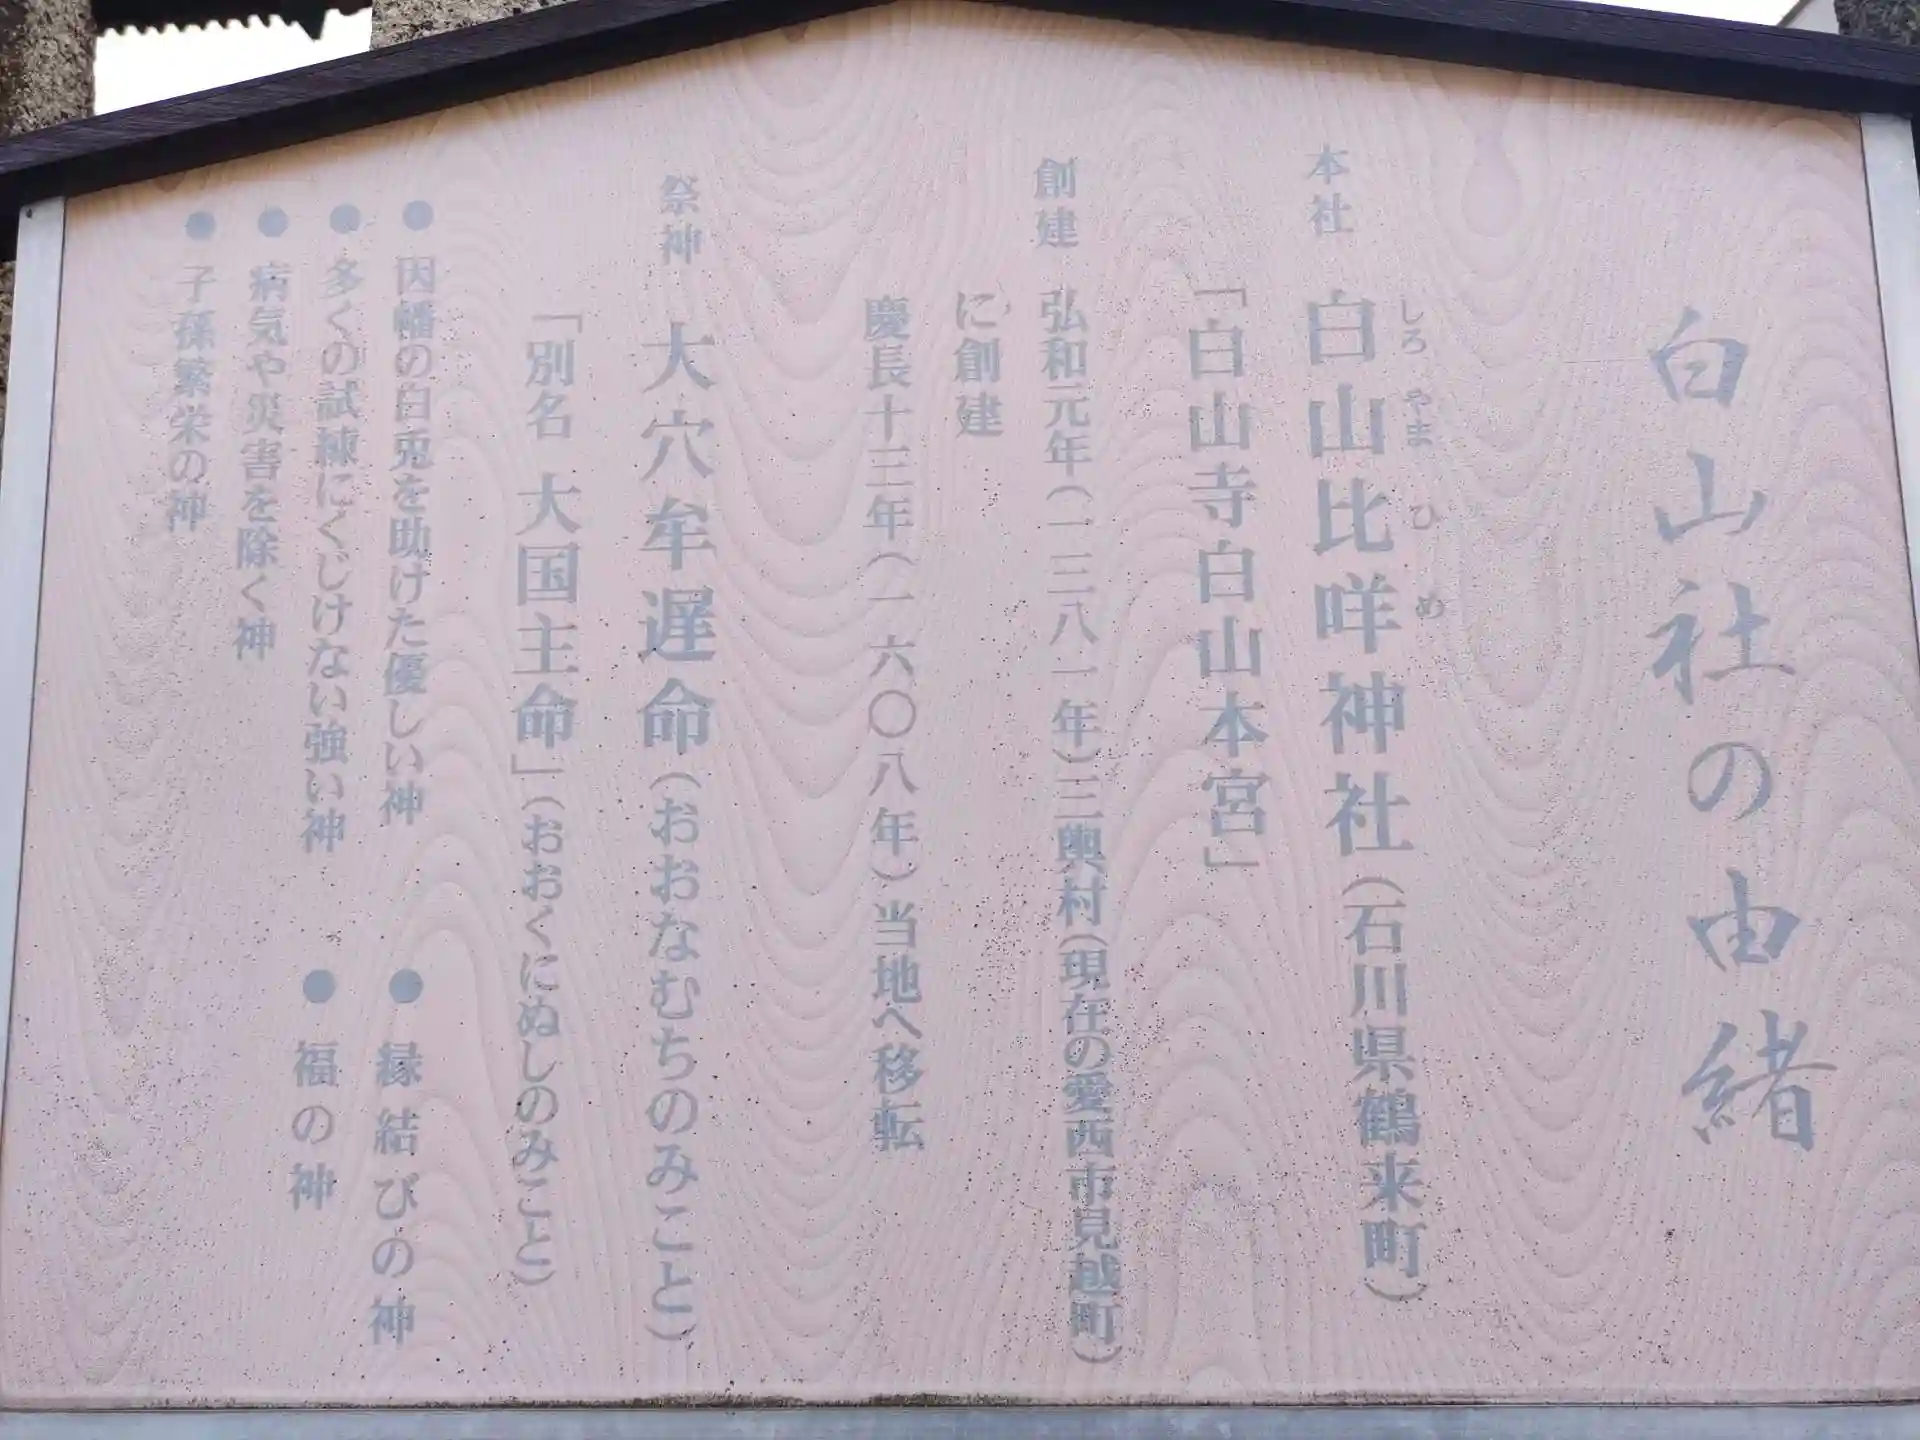 白山社の由緒
本社 白山比咩神社(石川県鶴来町)
しろ やま ひ め
「白山寺白山本宮」
創建 弘和元年(一三八一年)三輿村(現在の愛西市見越町)
に創建
慶長十三年(一六〇八年)当地へ移転
祭神 大穴牟遅命(おおなむちのみこと)
「別名 大国主命」(おおくにぬしのみこと)
● 因幡の白兎を助けた優しい神
● 多くの試練にくじけない強い神
● 病気や災害を除く神
● 子孫繁栄の神
● 縁結びの神
● 福の神